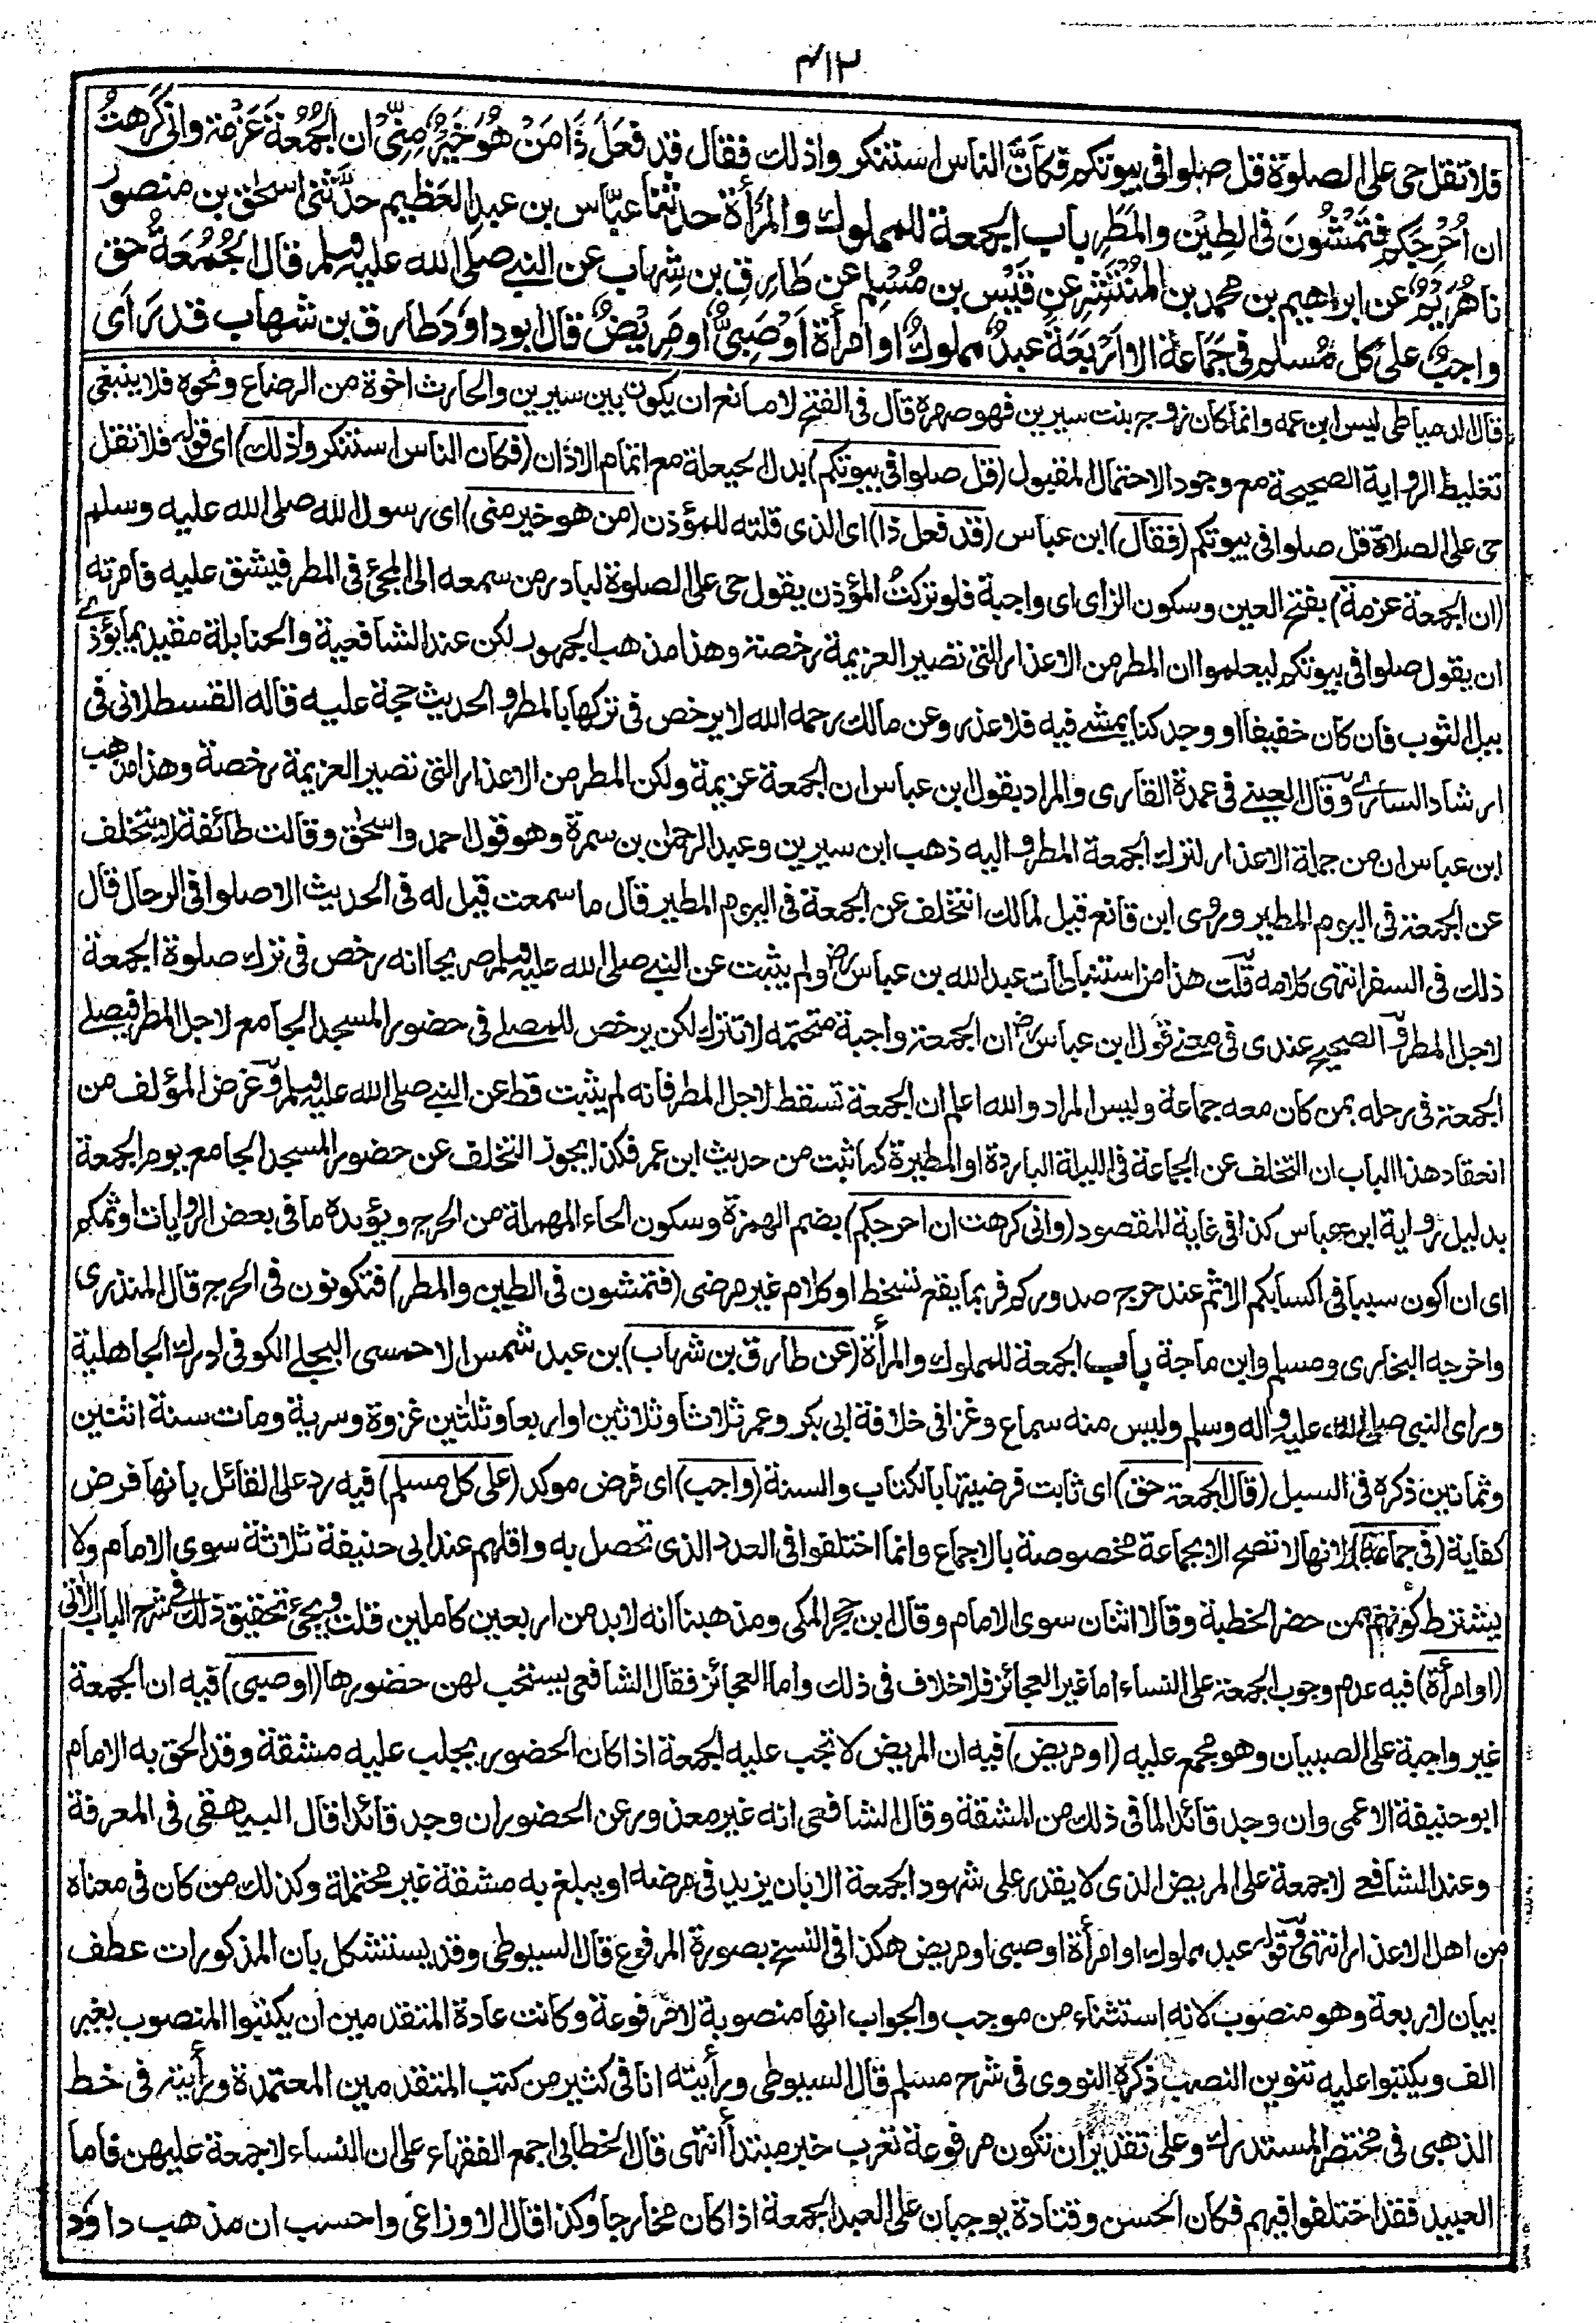 ٤١٢
فلا تقل حى على الصلوة قل صلوا فى بيوتكم فكَأَنَّ الناس استنكروا ذلك فقال قد فَعَلَ ذَا مَنْ هُوَ خَيْرٌ مِنِّىْ ان الجُمُعَةَ عَزْمَة وانى كَرِهتُ
ان اُحْرِجَكم فتَمْشُونَ فى الطِيْن والمَطَرِ باب الجمعة للمملوك والمَرأة حدثنا عبّاس بن عبدِ العَظيم حدَّثَنى اسحٰق بن منصور
نا هُرَيْمٌ عن ابراهيم بن محمد بن المُنْتَشِرِ عن قَيْس بن مُسْلِم عن طَارِقِ بن شِهاب عن النبى صلى الله عليه وسلم قال الجُمُعَةُ حق
واجبٌ على كل مُسلم فى جَمَاعة الا اَرْبَعَةَ عبدٌ مملوكٌ او امرأة اَوْ صَبِىٌّ او مَرِيْضٌ قال ابو داؤد طارق بن شهاب قد رَاَى
قال الدمياطى ليس ابن عمه وانما كان زوج بنت سيرين فهو صهره قال فى الفتح لا مانع ان يكون بين سيرين والحارث اخوة من الرضاع ونحوه فلا ينبغى
تغليط الرواية الصحيحة مع وجود الاحتمال المقبول (قل صلوا فى بيوتكم) بدل الحيعلة مع اتمام الاذان (فكان الناس استنكروا ذلك) اى قوله فلا تقل
حى على الصلاة قل صلوا فى بيوتكم (فقال) ابن عباس (قد فعل ذا) اى الذى قلته للمؤذن (من هو خير منى) اى رسول الله صلى الله عليه وسلم
(ان الجمعة عزمة) بفتح العين وسكون الزاى اى واجبة فلو تركتُ المؤذن يقول حى على الصلوة لبادر من سمعه الى المجئ فى المطر فيشق عليه فامرته
ان يقول صلوا فى بيوتكم ليعلموا ان المطر من الاعذار التى تصير العزيمة رخصة وهذا مذهب الجمهور لكن عند الشافعية والحنابلة مقيد بما يؤذى
ببل الثوب فان كان خفيفا او وجد كنا يمشى فيه فلا عذر وعن مالك رحمه الله لا يرخص فى تركها بالمطر والحديث حجة عليه قاله القسطلانى فى
ارشاد السارى وقال العينى فى عمدة القارى والمراد بقول ابن عباس ان الجمعة عزيمة ولكن المطر من الاعذار التى تصير العزيمة رخصة وهذا مذهب
ابن عباس ان من جملة الاعذار لترك الجمعة المطر واليه ذهب ابن سيرين وعبد الرحمٰن بن سمرة وهو قول احمد واسحٰق وقالت طائفة لا يتخلف
عن الجمعة فى اليوم المطير وروى ابن قانع قيل لمالك انتخلف عن الجمعة فى اليوم المطير قال ما سمعت قيل له فى الحديث الا صلوا فى الرحال قال
ذلك فى السفر انتهى كلامه قلت هذا من استنباطات عبد الله بن عباس رض ولم يثبت عن النبى صلى الله عليه وسلم صريحا انه رخص فى ترك صلوة الجمعة
لاجل المطر والصحيح عندى فى معنى قول ابن عباس رض ان الجمعة واجبة متحتمه لا تترك لكن يرخص للمصلى فى حضور المسجد الجامع لاجل المطر فيصلى
الجمعة فى رحله بمن كان معه جماعة وليس المراد والله اعلم ان الجمعة تسقط لاجل المطر فانه لم يثبت قط عن النبى صلى الله عليه وسلم وغرض المؤلف من
انعقاد هذا الباب ان التخلف عن الجماعة فى الليلة الباردة او المطيرة كما ثبت من حديث ابن عمر فكذا يجوز التخلف عن حضور المسجد الجامع يوم الجمعة
بدليل رواية ابن عباس كذا فى غاية المقصود (وانى كرهت ان احرجكم) بضم الهمزة وسكون الحاء المهملة من الحرج ويؤيده ما فى بعض الروايات اوثمكم
اى ان اكون سببا فى اكسابكم الاثم عند حرج صدوركم فربما يقع تسخط او كلام غير مرضى (فتمشون فى الطين والمطر) فتكونون فى الحرج قال المنذرى
واخرجه البخارى ومسلم وابن ماجة باب الجمعة للمملوك والمرأة (عن طارق بن شهاب) بن عبد شمس الاحمسى البجلى الكوفى ادرك الجاهلية
ورأى النبى صلى الله عليه واله وسلم وليس منه سماع وغزا فى خلافة ابى بكر وعمر ثلاثا وثلاثين او اربعا وثلثين غزوة وسرية ومات سنة اثنتين
وثمانين ذكره فى السبل (قال الجمعة حق) اى ثابت فرضيتها بالكتاب والسنة (واجب) اى فرض موكد (على كل مسلم) فيه رد على القائل بانها فرض
كفاية (فى جماعة) لانها لا تصح الا بجماعة مخصوصة بالاجماع وانما اختلفوا فى العدد الذى تحصل به واقلهم عند ابى حنيفة ثلاثة سوى الامام ولا
يشترط كونهم ممن حضر الخطبة وقالا اثنان سوى الامام وقال ابن حجر المكى ومذهبنا انه لا بد من اربعين كاملين قلت ويجئ تحقيق ذلك فى شرح الباب الاتى
(او امرأة) فيه عدم وجوب الجمعة على النساء اما غير العجائز فلا خلاف فى ذلك واما العجائز فقال الشافعى يستحب لهن حضورها (او صبى) فيه ان الجمعة
غير واجبة على الصبيان وهو مجمع عليه (او مريض) فيه ان المريض لا تجب عليه الجمعة اذا كان الحضور يجلب عليه مشقة وقد الحق به الامام
ابو حنيفة الاعمى وان وجد قائدا لما فى ذلك من المشقة وقال الشافعى انه غير معذور عن الحضور ان وجد قائدا قال البيهقى فى المعرفة
وعند الشافعى لا جمعة على المريض الذى لا يقدر على شهود الجمعة الا بان يزيد فى مرضه او يبلغ به مشقة غير محتملة وكذلك من كان فى معناه
من اهل الاعذار انتهى وقوله عبد مملوك او امرأة او صبى او مريض هكذا فى النسخ بصورة المرفوع قال السيوطى وقد يستشكل بان المذكورات عطف
بيان لاربعة وهو منصوب لانه استثناء من موجب والجواب انها منصوبة لا مرفوعة وكانت عادة المتقدمين ان يكتبوا المنصوب بغير
الف ويكتبوا عليه تنوين النصب ذكره النووى فى شرح مسلم قال السيوطى ورأيته انا فى كثير من كتب المتقدمين المعتمدة ورأيته فى خط
الذهبى فى مختصر المستدرك وعلى تقدير ان تكون مرفوعة تعرب خبر مبتدأ انتهى قال الخطابى اجمع الفقهاء على ان النساء لا جمعة عليهن فاما
العبيد فقد اختلفوا فيهم فكان الحسن وقتادة يوجبان على العبد الجمعة اذا كان مخارجا وكذا قال الاوزاعى واحسب ان مذهب داود